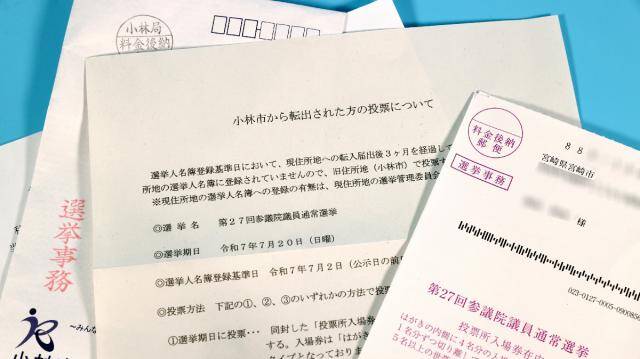 小林局
料金後納
選挙事務
～みんな
小林
小林市から転出された方の投票について
選挙人名簿登録基準日において、現住所地への転入届出後3ヶ月を経過して
所地の選挙人名簿に登録されていませんので、旧住所地（小林市）で投票す
※現住所地の選挙人名簿への登録の有無は、現住所の選挙管理委員会
◎選挙名　第２７回参議院議員通常選挙
◎選挙期日　令和７年７月２０日（日曜）
◎選挙人名簿登録基準日　令和７年７月２日（公示日の前
◎投票方法　下記の①、②、③のいずれかの方法で投票
①選挙期日に投票･･･　同封した「投票所入場券
する。入場券は「はがき
タイプとなっておりま
料金後納
郵便
選挙事務
８８
宮崎県宮崎市
様
023-0127-0005-0900850
第27回参議院議員通常選挙
投票所入場券在
はがきの内側に４名分の入
１名分ずつ切り離して
５名以上の世帯